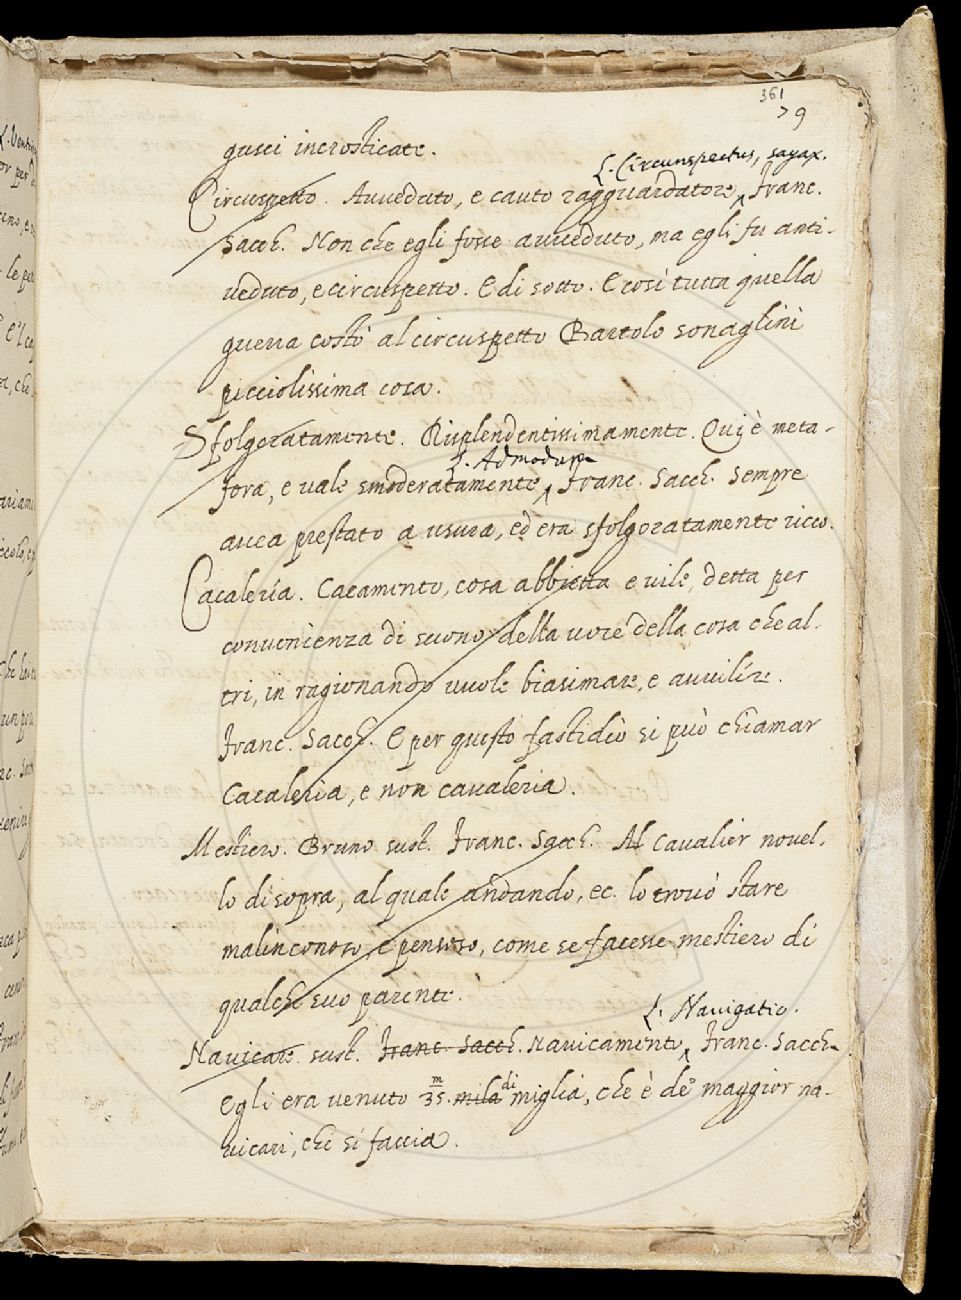 361
79
gusci incrosticate.
L. Circunspectus, sagax.
Circuspetto. Avveduto, e cauto ragguardatore, Franc.
Sacch. Non che egli fosse avveduto, ma egli fu anti-
veduto, e circuspetto. E di sotto. E così tutta quella
guerra costò al circuspetto Bartolo sonaglini
picciolissima cosa.
Sfolgoratamente. Risplendentissimamente. Qui è meta-
L. Admodum
fora, e vale smoderatamente, Franc. Sacch. Sempre
avea prestato a usura, ed era sfolgoratamente ricco.
Cacaleria. Cacamento, cosa abbietta e vile, detta per
convenienza di suono della voce della cosa che al-
tri, in ragionando vuole biasimare, e avvilire.
Franc. Sacch. E per questo fastidio si può chiamar
Cacaleria, e non cavaleria.
Mestiero. Bruno sust. Franc. Sacch. Al Cavalier novel-
lo di sopra, al quale andando, ec. lo trovò stare
malinconoso e pensoso, come se facesse mestiero di
qualche suo parente.
L. Navigatio.
Navicare sust. Franc. Sacch. Navicamento, Franc. Sacch.
Egli era venuto 35. m mila di miglia, che è de' maggior na-
vicari, che si faccia.